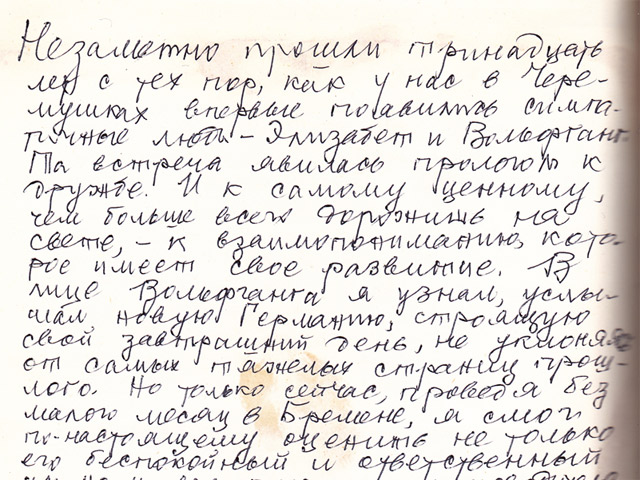 Незаметно прошли тринадцать
лет с тех пор, как у нас в Чере-
мушках впервые появились симпа-
тичные люди – Элизабет и Вольфганг.
Та встреча явилась прологом к
дружбе. И к самому ценному,
чем больше всего дорожишь на
свете, – к взаимопониманию, кото-
рое имеет свое развитие. В
лице Вольфганга я узнал, услы-
шал новую Германию, строящую
свой завтрашний день, не уклоняясь
от самых тяжелых страниц прош-
лого. Но только сейчас, проведя без
малого месяц в Бремене, я смог
по-настоящему оценить не только
его беспокойный и ответственный